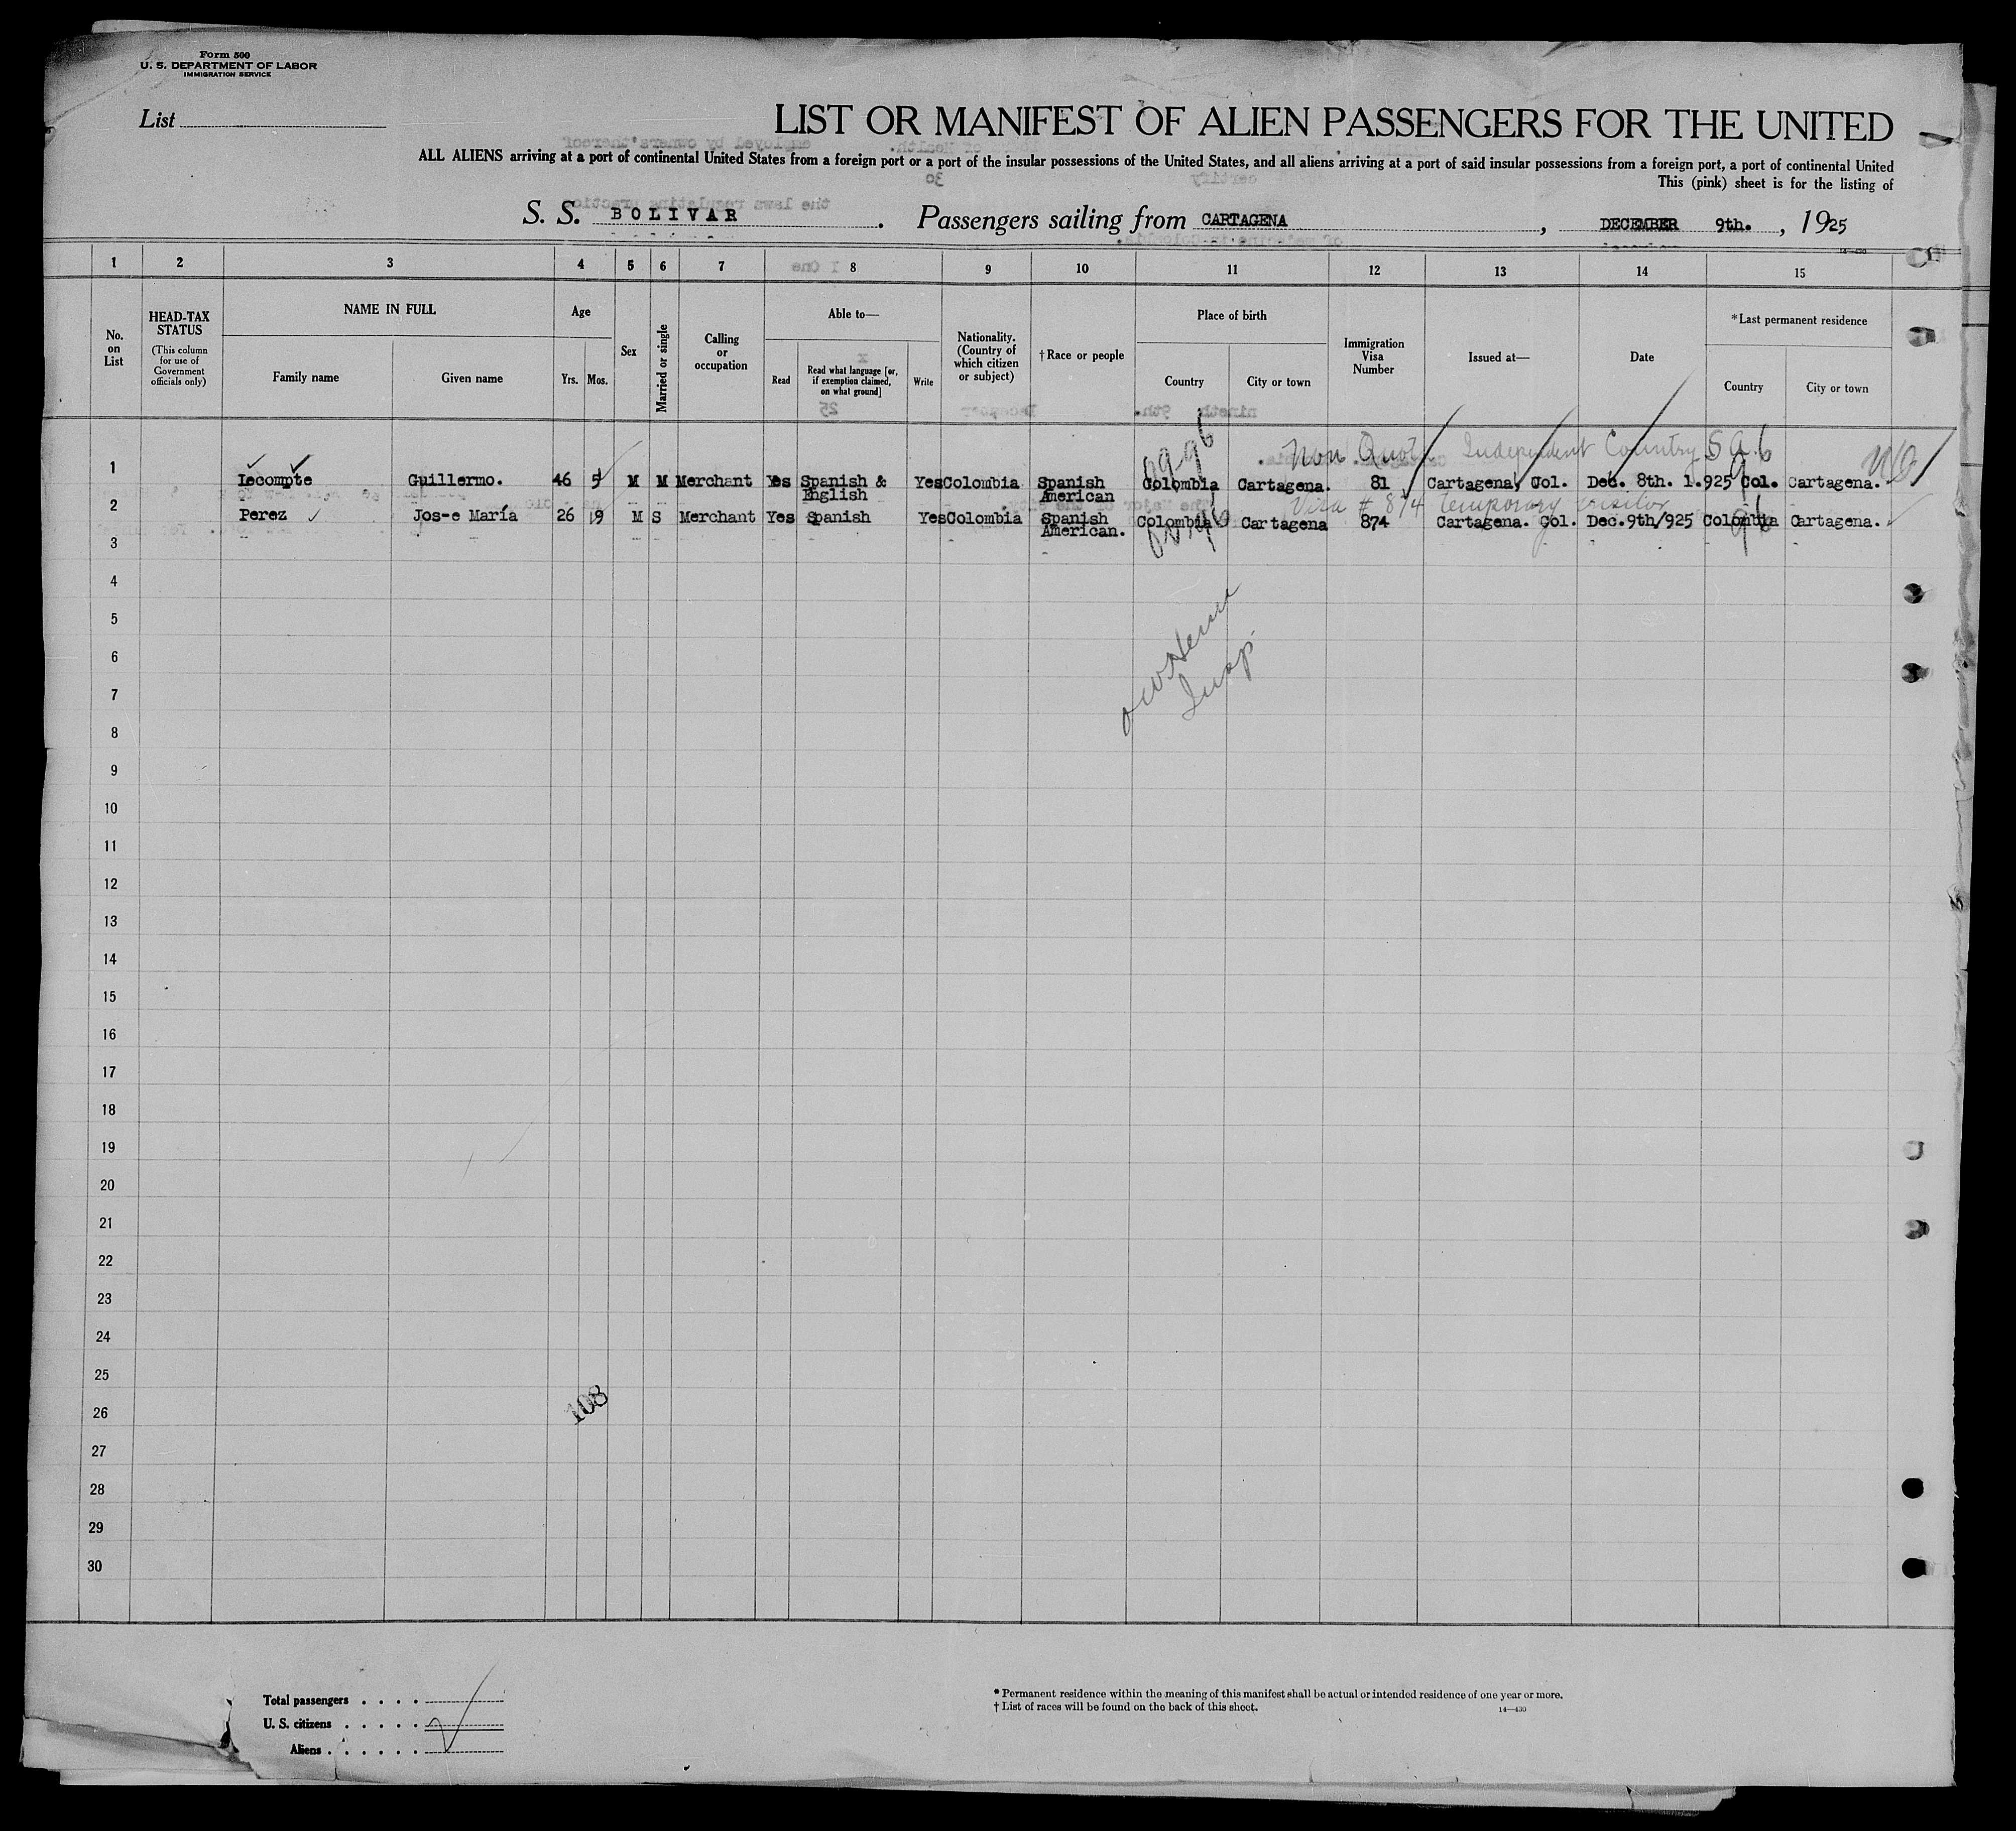 Form 500
U. S. DEPARTMENT OF LABOR
IMMIGRATION SERVICE
List
LIST OR MANIFEST OF ALIEN PASSENGERS FOR THE UNITED
ALL ALIENS arriving at a port of continental United States from a foreign port or a port of the insular possessions of the United States, and all aliens arriving at a port of said insular possessions from a foreign port, a port of continental United
This (pink) sheet is for the listing of
S. S. BOLIVAR. Passengers sailing from CARTAGENA, DECEMBER 9th., 1925
14—430
1 2 3 4 5 6 7 8 9 10 11 12 13 14 15
No. on List
HEAD-TAX STATUS
(This column for use of Government officials only)
NAME IN FULL
Family name
Given name
Age
Yrs. Mos.
Sex
Married or single
Calling or occupation
Able to—
Read
Read what language [or, if exemption claimed, on what ground]
Write
Nationality. (Country of which citizen or subject)
†Race or people
Place of birth
Country
City or town
Immigration Visa Number
Issued at—
Date
*Last permanent residence
Country
City or town
Non Quot Independent Country S.A.
1 Lecompte Guillermo. 46 5 M M Merchant Yes Spanish & English Yes Colombia Spanish American Colombia Cartagena. 81 Cartagena, Col. Dec. 8th. 1.925 Col. Cartagena.
Visa # 874 temporary visitor
2 Perez Jos-e María 26 9 M S Merchant Yes Spanish Yes Colombia Spanish American. Colombia Cartagena 874 Cartagena. Col. Dec.9th/925 Colombia Cartagena.
3
4
5
6
Insp.
7
8
9
10
11
12
13
14
15
16
17
18
19
20
21
22
23
24
25
26
108
27
28
29
30
Total passengers . . . .
U. S. citizens . . . . .
Aliens . . . . . .
* Permanent residence within the meaning of this manifest shall be actual or intended residence of one year or more.
† List of races will be found on the back of this sheet.
14—430